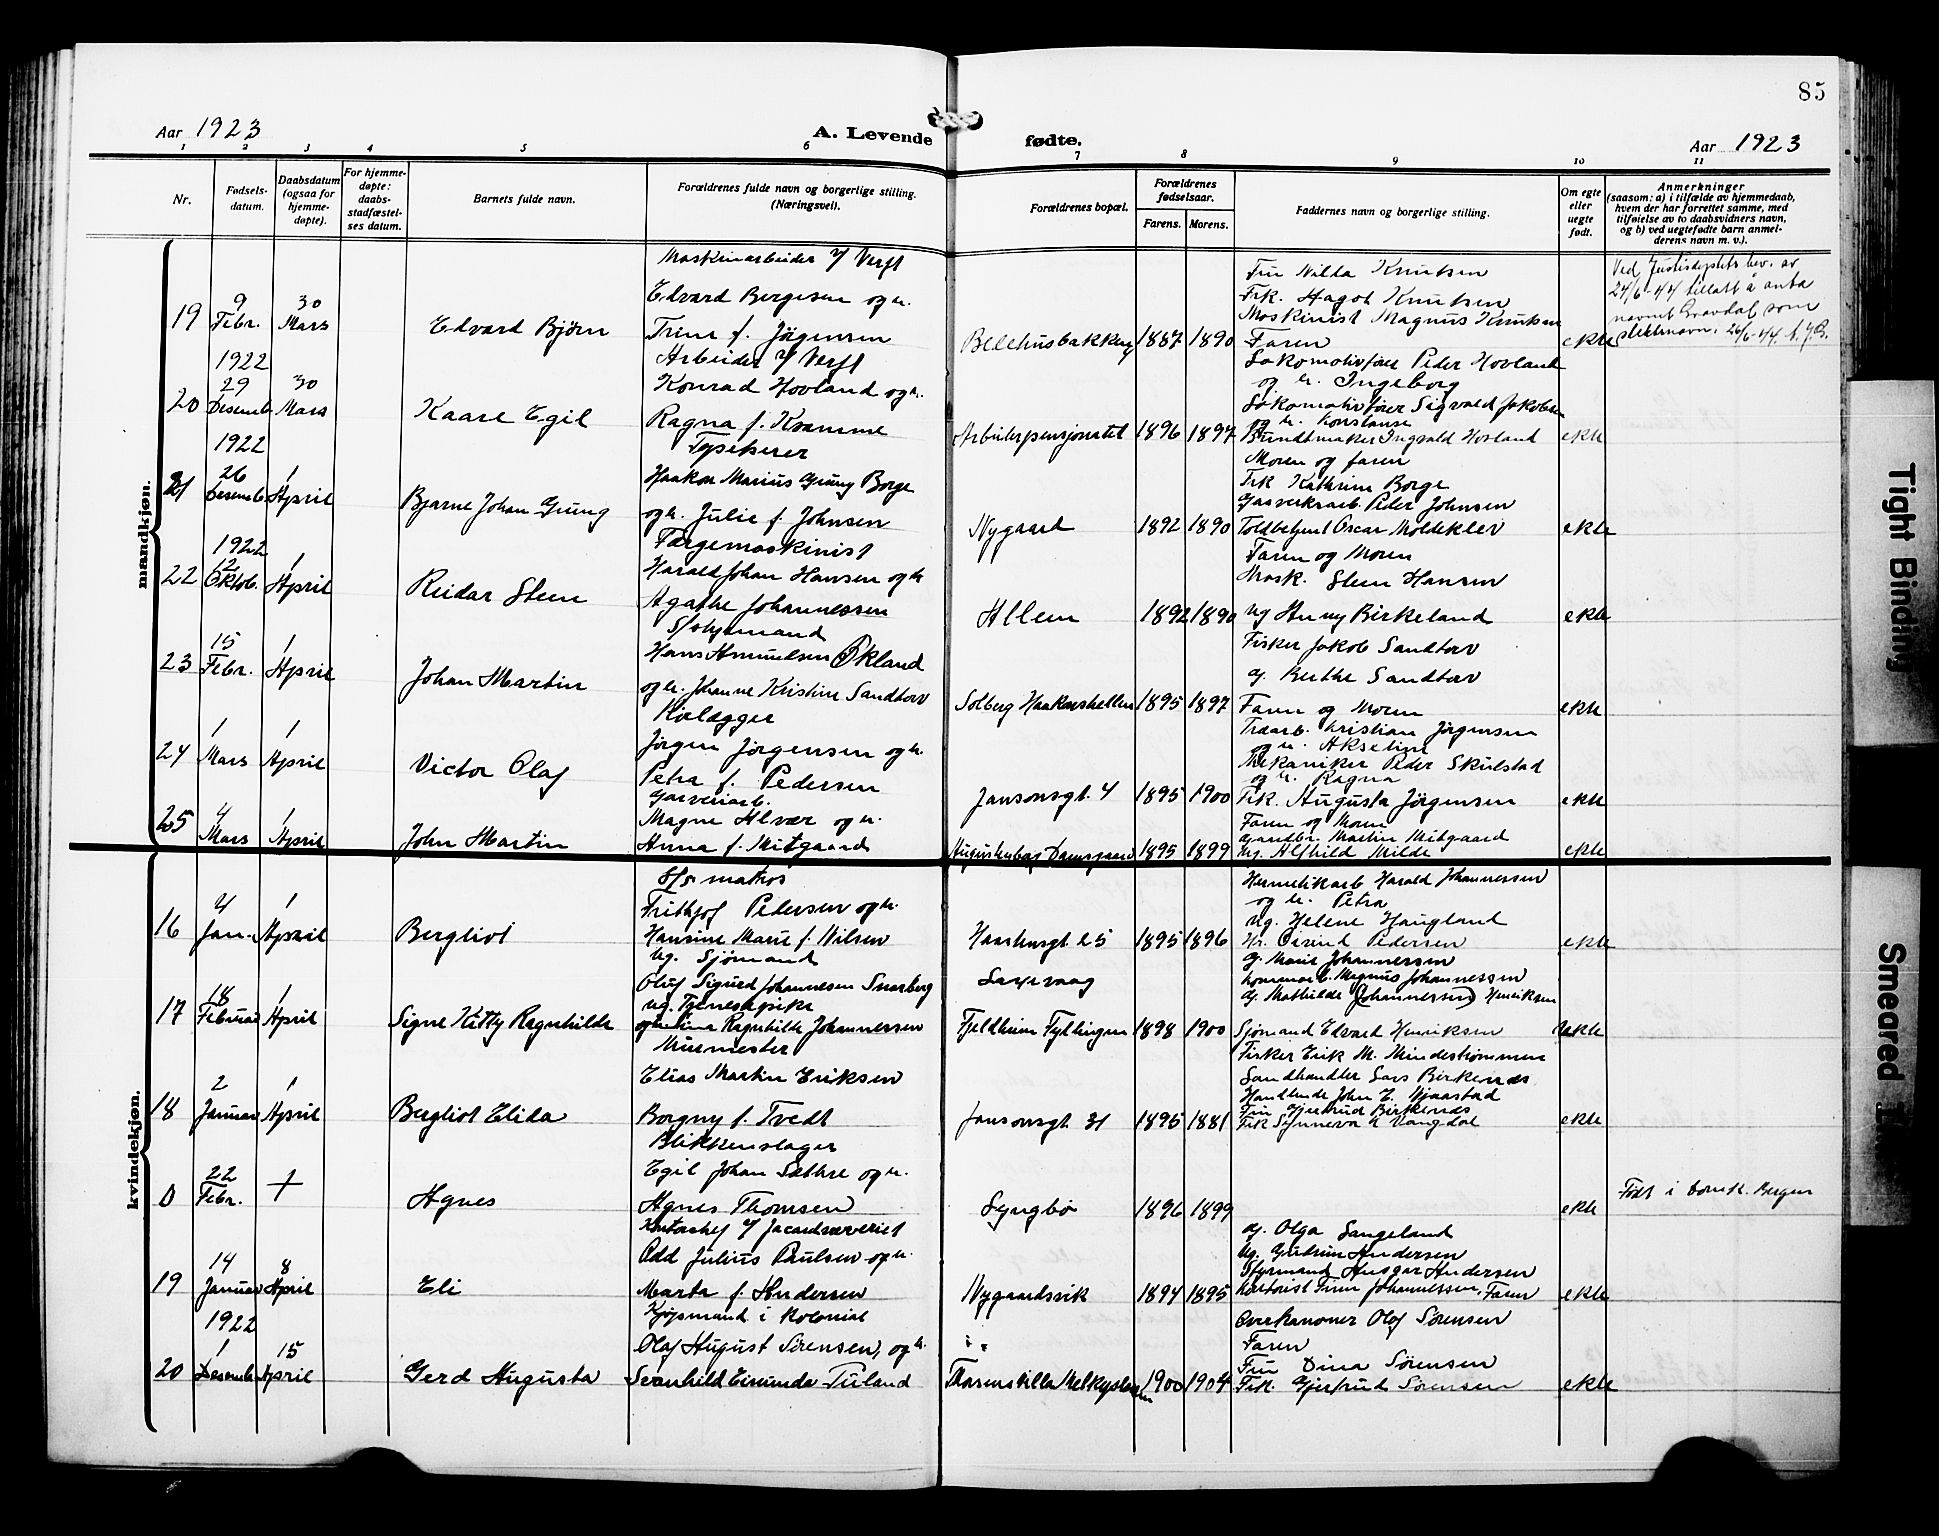 85
Aar 1923
A. Levende fødte.
Aar 1923
1 2 3 4 5 6 7 8 9 10 11
Nr.
Fødsels-
datum.
Daabsdatum
(ogsaa for
hjemme-
døpte).
For hjemme-
døpte:
daabs-
stadfæstel-
ses datum.
Barnets fulde navn.
Forældrenes fulde navn og borgerlige stilling.
(Næringsvei).
Forældrenes bopæl.
Forældrenes
fødselsaar.
Farens. Morens.
Faddernes navn og borgerlige stilling.
Om egte
eller
uegte
født.
Anmerkninger
(saasom: a) i tilfælde av hjemmedaab,
hvem der har forrettet samme, med
tilføielse av to daabsvidners navn,
og b) ved uegtefødte barn anmel-
derens navn m. v.).
mandkjøn.
19
9
Febr.
30
Mars
Edvard Bjørn
Maskinarbeider v/ Verft
Edvard Bergesen og h.
Trine f. Jörgensen
1887 1890
Fru Nilla Knutsen
Frk. Hagot Knutsen
Maskinist Magnus Knutsen
Faren
ekte
24/6-44 tillatt å anta
navnet Gravdal som
slektsnavn. 26/6-44
20
1922
29
Desemb.
30
Mars
Kaare Egil
Arbeider v/ Verft
Konrad Hovland og h.
Ragna f. Kvamme
Arbeiderpensjonatet
1896 1897
Lokomotivfører Peder Hovland
og h. Ingeborg
Lokomotivfører Sigvald Jakobsen
og h. Konstanse
Buntmaker Ingvald Hovland
Moren og faren
ekte
21
1922
26
Desemb.
1
April
Bjarne Johan Grung
Typekerer
Haakon Marius Grung Borge
og h. Julie f. Johnsen
Nygaard
1892 1890
Frk Kathrine Borge
Gasverksarb. Peder Johnsen
Toldbetjent Oscar Moldeklev
Faren og Moren
ekte
22
1922
12
Oktob.
1
April
Reidar Steen
Færgemaskinist
Harald Johan Hansen og h
Agathe Johannessen
Alleen
1892 1890
Mask. Steen Hansen
ug Henny Birkeland
ekte
23
15
Febr.
1
April
Johan Martin
Hans Amundsen Økland
og h. Johanne Kristine Sandtorv
Solberg Haakonshellen
1895 1897
Fisker Jakob Sandtorv
g. Berthe Sandtorv
Faren og Moren
ekte
24
1
Mars
1
April
Victor Olaf
Jørgen Jørgensen og h.
Petra f. Pedersen
Jansonsgt. 4
1895 1900
Træarb. Kristian Jørgensen
og h. Akseline
Mekaniker Peder Skulstad
og h. Ragna
Frk. Augusta Jörgensen
Faren og Moren
ekte
25
4
Mars
1
April
John Martin
Garveriarb.
Magne Alvær og h.
Anna f. Mitgaard
Augustenborg Damsgaard
1895 1899
Gaardbr. Martin Mitgaard
ug. Alfhild Milde
ekte
kvindekjøn.
16
4
Jan.
1
April
Bergliot
S/s matros
Frithjof Pedersen og h.
Hansine Marie f. Nilsen
1895 1896
Hermetikarb Harald Johannessen
og h. Petra
ug. Helene Haugland
Hr. Øivind Pedersen
ekte
17
18
Februar
1
April
Signe Kitty Ragnhilde
ug. Sjömand
Oluf Sigurd Johannesen Snarberg
ug. Tjenestepike
Ragnhilde Johannessen
Laksevaag
Fjeldheim Fyllingen
1898 1900
g. Marie Johannessen
Magnus Johannessen
g. Mathilde (Johannesen) Henriksen
Sjömand Edvard Henriksen
18
2
Januar
1
April
Bergliot Elida
Murmester
Elias Martin Eriksen
Borgny f. Tvedt
Jansonsgt 31
1895 1881
Fisker Erik M. Mindeströmmen
Sandhandler Lars Birkenæs
Handlende John E. Njaastad
Fru Gjertrud Birkenæs
Frk Synneva Vangdal
ekte
0
22
Febr.
+
Agnes
Blikkenslager
Egil Johan Sæthre og h.
Agnes Thomsen
Lyngbø
1896 1899
ekte
Født i Domk. Bergen
19
14
Januar
8
April
Eli
Kontorchef v/ Jacardvæveriet
Odd Julius Paulsen og h.
Marta f. Andersen
Nygaardsvik
1894 1895
g. Olga Langeland
ug. Gudrun Andersen
Styrmand Ansgar Andersen
Kontorist Finn Johannessen, Faren
ekte
20
1922
1
Desemb.
15
April
Gerd Augusta
Kjøpmand i kolonial
Olaf August Sörensen, og h.
Svanhild Eminda Tuland
1900 1904
Overkanoner Olaf Sörensen
Faren
Fru Dina Sörensen
Frk. Gjertrud Sörensen
ekte
Tight Binding
Smeared